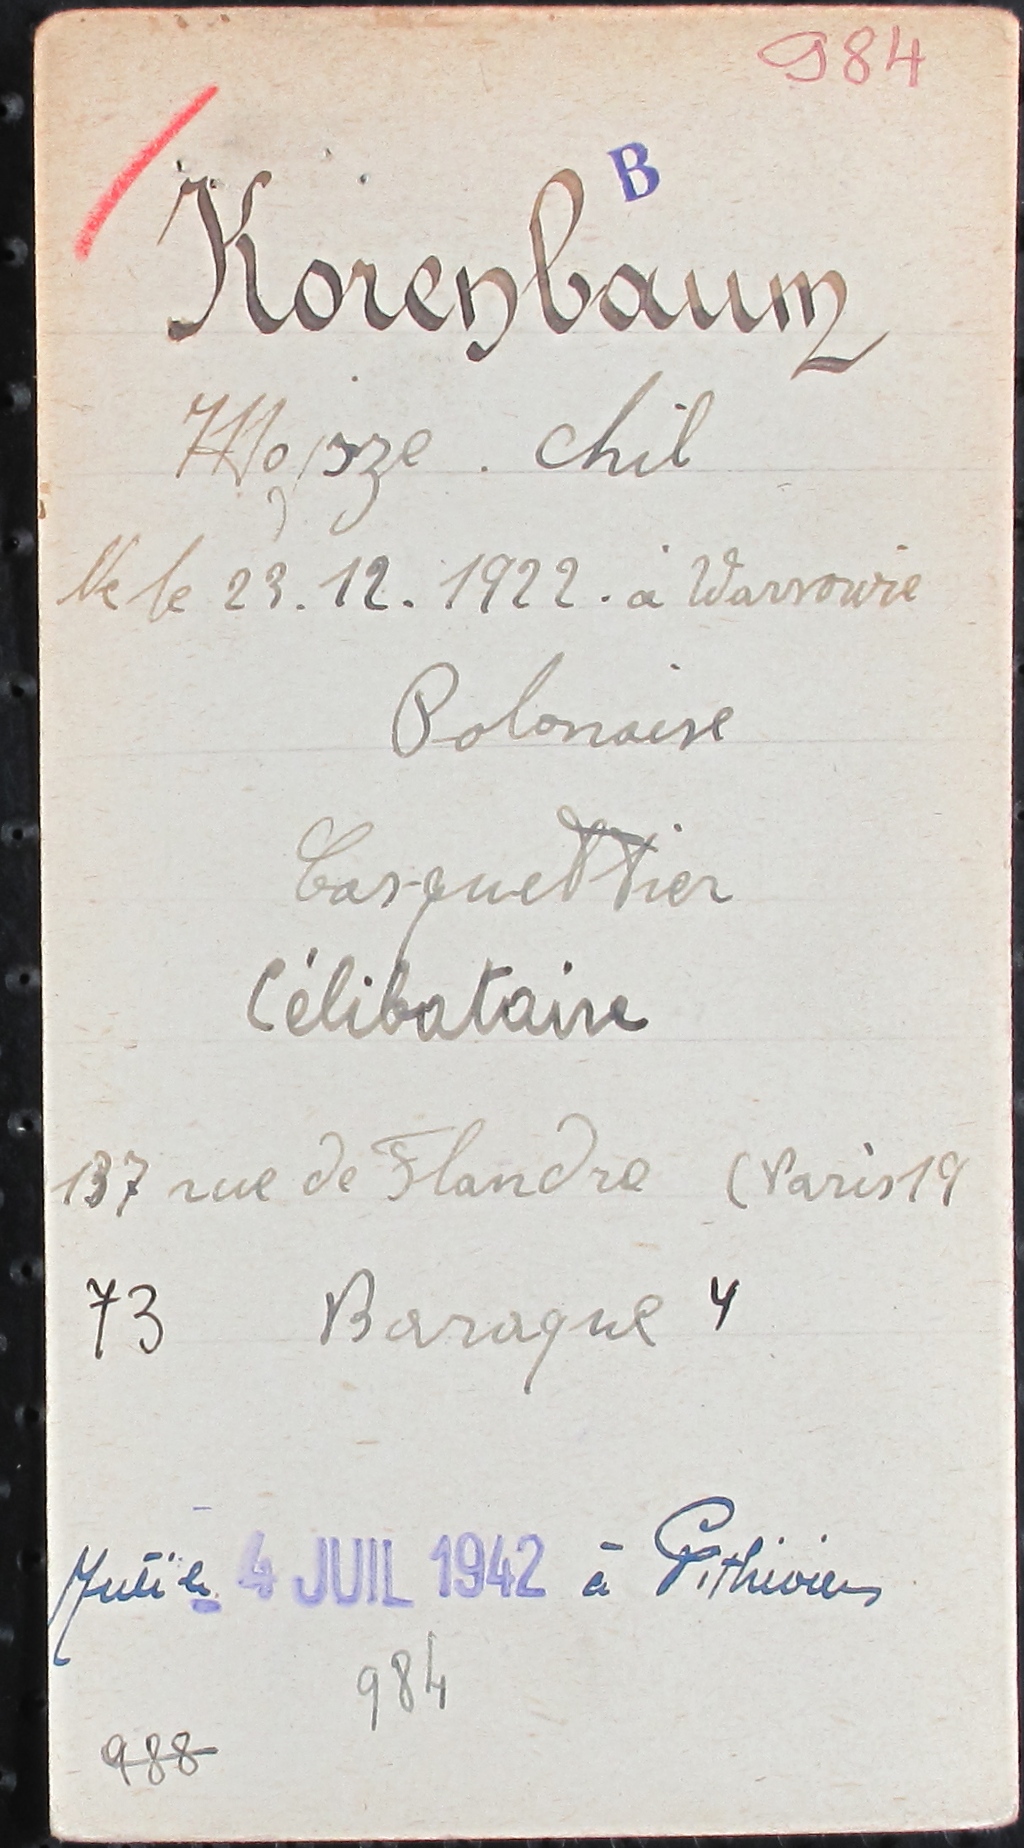 984
B
Korenbaum
Mojsze. Chil
Né le 23.12.1922. à Warsowie
Polonaise
Casquettier
Célibataire
137 rue de Flandre (Paris 19
73 Baraque 4
Muté le 4 JUIL 1942 à Pithiviers
984
988